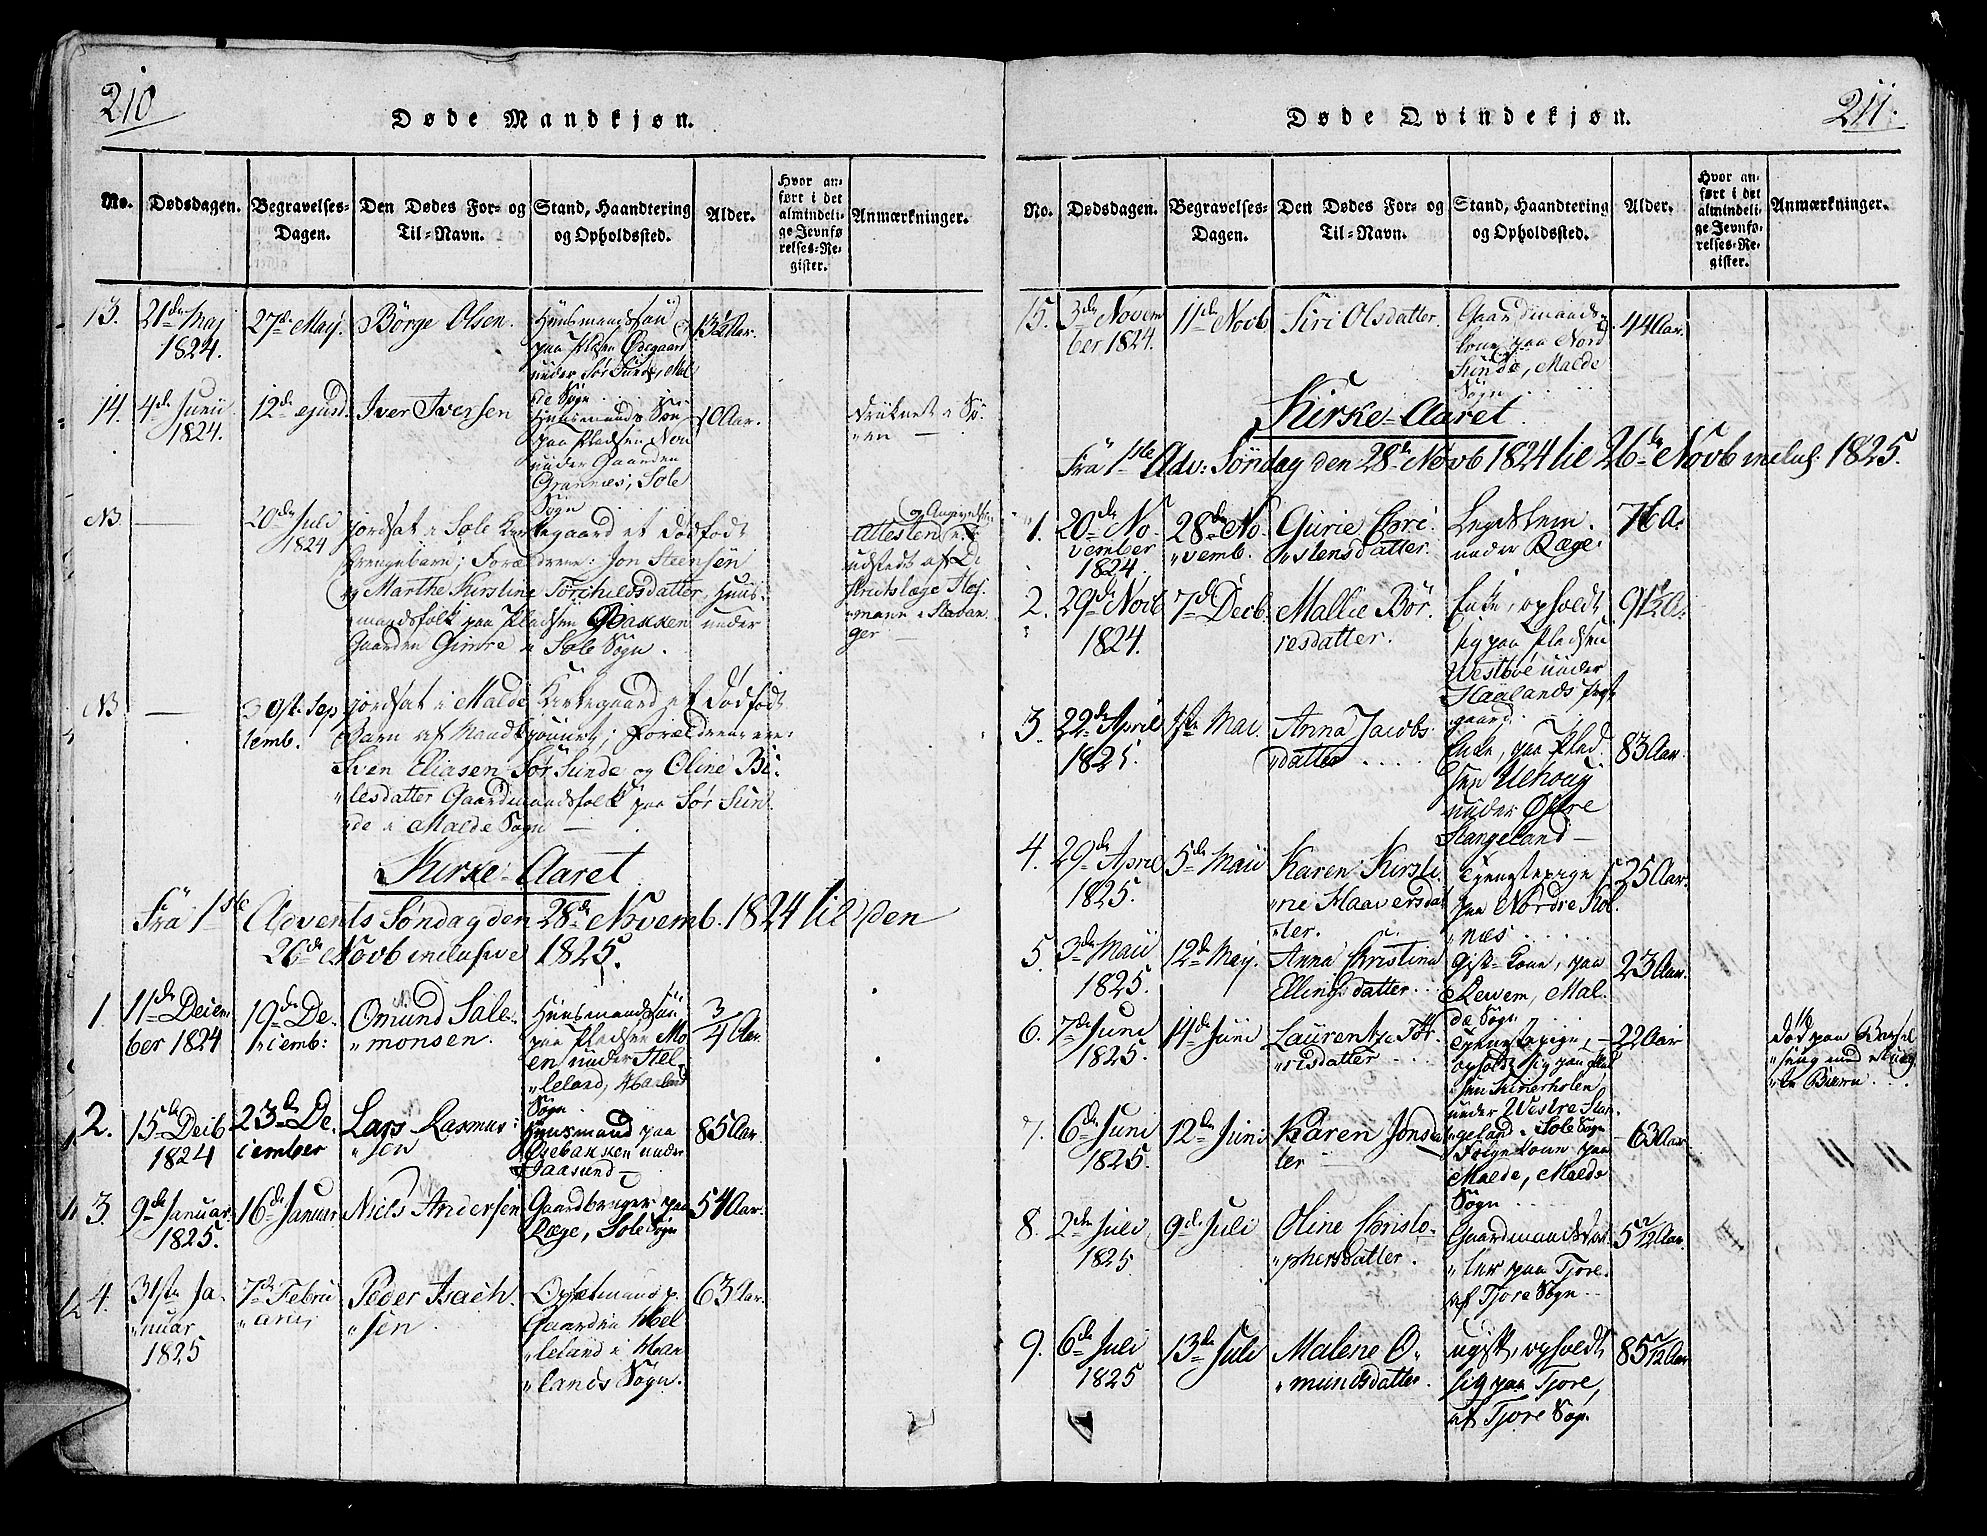 210
Døde Mandkjøn.
No.
Dødsdagen.
Begravelses-
Dagen.
Den Dødes For- og
Til-Navn.
Stand, Haandtering
og Opholdssted.
Alder.
Hvor an-
ført i det
almindeli-
ge Jevnfø
relses-Re-
gister.
Anmærkninger.
13.
21de Maj
1824.
27de Maij.
Børge Olsen.
Huusmandssøn
paa Pladsen Ødegaard
under Sør Sunde, Mal
de Sogn
13½ Aar.
14.
4de Junii
1824.
12de ejusd.
Iver Iversen
Huusmands Søn
paa Pladsen
under Gaarden
Grannæs, Sole
Sogn
10 Aar.
druknet i Sø-
"en —
NB
—
20de Juli
1824
jordsat i Sole Kirkegaard et dødfødt
Drengebarn; Forældrene: Jon Steensen
og Marthe Kirstine Torchildsdatter, Huus-
"mandsfolk paa Pladsen Bakken under
Gaarden Gimre i Sole Sogn.
Attesten er
udstedt af Di
strictslæge Hof
"mann i Stavan
ger —
NB
—
30te Sep
temb.
jordsat i Malde Kirkegaard et dødfødt
Barn af Mandkjønnet; Forældrene ere:
Sven Eliasen Sør Sunde og Oline Bi-
"lesdatter Gaardmandsfolk paa Sør Sun
"de i Malde Sogn —
Kirke-Aaret
Fra 1ste Advents Søndag den 28de Novemb. 1824 til den
26de Novb inclusive 1825.
1.
11de Decem
ber 1824
19de De-
"cemb:
Omund Salo-
"monsen.
Huusmandssøn
paa Pladsen Mo
en under Mel-
"leland, Haaland
Sogn
3/4 Aar.
2.
15de Decb
1824
23de De-
cember
Lars Rasmu-
"sen
Huusmand paa
Risebakken under
Jaasund —
85 Aar.
3.
9de Januar
1825.
16de Januar
Niels Andersen
Gaardbruger paa
Ræge, Sole Sogn
54 Aar.
4.
31te Ja-
"nuar
1825
7de Febru
"arii
Peder Isach-
"sen
Opsetmand p.
Gaarden Mel
"leland i Haa
"lands Sogn.
63 Aar.
211.
Døde Qvindekjøn.
No.
Dødsdagen.
Begravelses-
Dagen.
Den Dødes For- og
Til-Navn.
Stand, Haandtering
og Opholdssted.
Alder.
Hvor an-
ført i det
almindeli-
ge Jevnfø-
relses-Re-
gister.
Anmærkninger.
15.
3de Novem
ber 1824.
11de Novb
Siri Olsdatter.
Gaardmands-
kone paa Nord
Sunde, Malde
Sogn
44 Aar.
Kirke-Aaret
Fra 1ste Adv: Søndag den 28de Novb 1824 til 26de Novb inclus. 1825.
1.
20de No-
vember
1824
28de No-
"vemb.
Gurie Chri-
"stensdatter.
Legdslem
under Ræge.
76 A.
2.
29de Novb
1824.
7de Decb.
Mallie Bør-
resdatter.
Enke, opholdt
sig paa Pladsen
Westbøe under
Haalands Præste
gaard.
91½ A.
3.
22de April
1825.
1ste Mai.
Anna Jacobs
"datter
Enke, paa Plad
sen Uehoug
under Østre
Stangeland —
83 Aar.
4.
29de April
1825.
5de Maii
Karen Kirsti-
"ne Haaversdat
"ter.
Tjenestepige
paa Nordre Kol
"næs
25 Aar.
5.
3de Maii
1825.
12de Maij.
Anna Christina
Ellingsdatter
Gift-Kone, paa
Revem, Mal-
de Sogn
23 Aar.
6.
7de Juni
1825.
14de Juni
Laurentze Tor-
"risdatter
Tjenestepige,
opholdt sig paa Plad
sen
under Westre Stan-
"geland i Sole Sogn
22 Aar
Død paa Barsel
"seng med
"te Barn
7.
6de Juni
1825.
12de Juni
Karen Jonsda
ter
Folgekone paa
Malde, Malde
Sogn
63 Aar
8.
2den Juli
1825
9de Juli
Oline Christo-
"phersdatter.
Gaardmandsdat-
"ter paa Tjore
af Tjore Sogn
9.
6de Juli
1825
13de Juli
Malene O-
"mundsdatter.
ugift, opholdt
sig paa Tjore,
af Tjore Sogn.